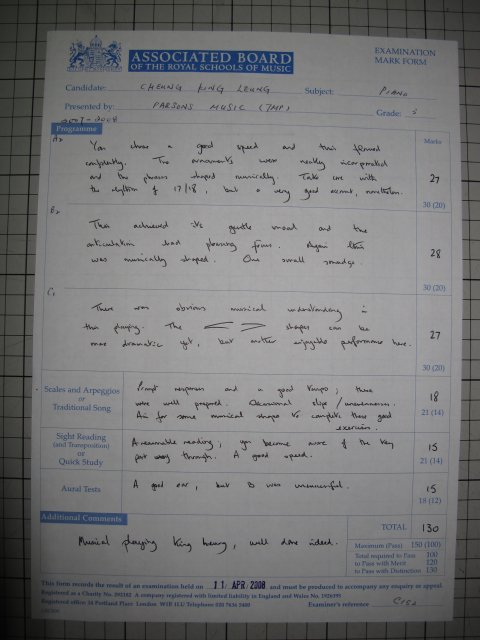 ASSOCIATED BOARD
OF THE ROYAL SCHOOLS OF MUSIC
EXAMINATION
MARK FORM
Candidate: CHEUNG KING LEUNG Subject: PIANO
Presented by: PARSONS MUSIC (TMP) Grade: 5
2007-2008
Programme
Marks
A2
You chose a good speed and this flowed
confidently. The ornaments were neatly incorporated
and the phrases shaped musically. Take care with
the rhythm of 17/18, but a very good account, nonetheless.
27
30 (20)
B2
This achieved its gentle mood and the
articulation had pleasing focus. Again this
was musically shaped. One small smudge.
28
30 (20)
C1
There was obvious musical understanding in
this playing. The < > shapes can be
more dramatic yet, but another enjoyable performance here.
27
30 (20)
Scales and Arpeggios
or
Traditional Song
Prompt responses and a good tempo; these
were well prepared. Occasional slips / unevenness.
Aim for some musical shape to complete these good
exercises.
18
21 (14)
Sight Reading
(and Transposition)
or
Quick Study
A reasonable reading; you became unsure of the key
part way through. A good speed.
15
21 (14)
Aural Tests
A good ear, but B was unsuccessful.
15
18 (12)
Additional Comments
Musical playing King Leung, well done indeed.
TOTAL 130
Maximum (Pass) 150 (100)
Total required to Pass 100
to Pass with Merit 120
to Pass with Distinction 130
This form records the result of an examination held on 11 APR 2008 and must be produced to accompany any enquiry or appeal.
Registered as a Charity No. 292182 A company registered with limited liability in England and Wales No. 1926395
Registered office: 24 Portland Place London W1B 1LU Telephone 020 7636 5400
Examiner's reference